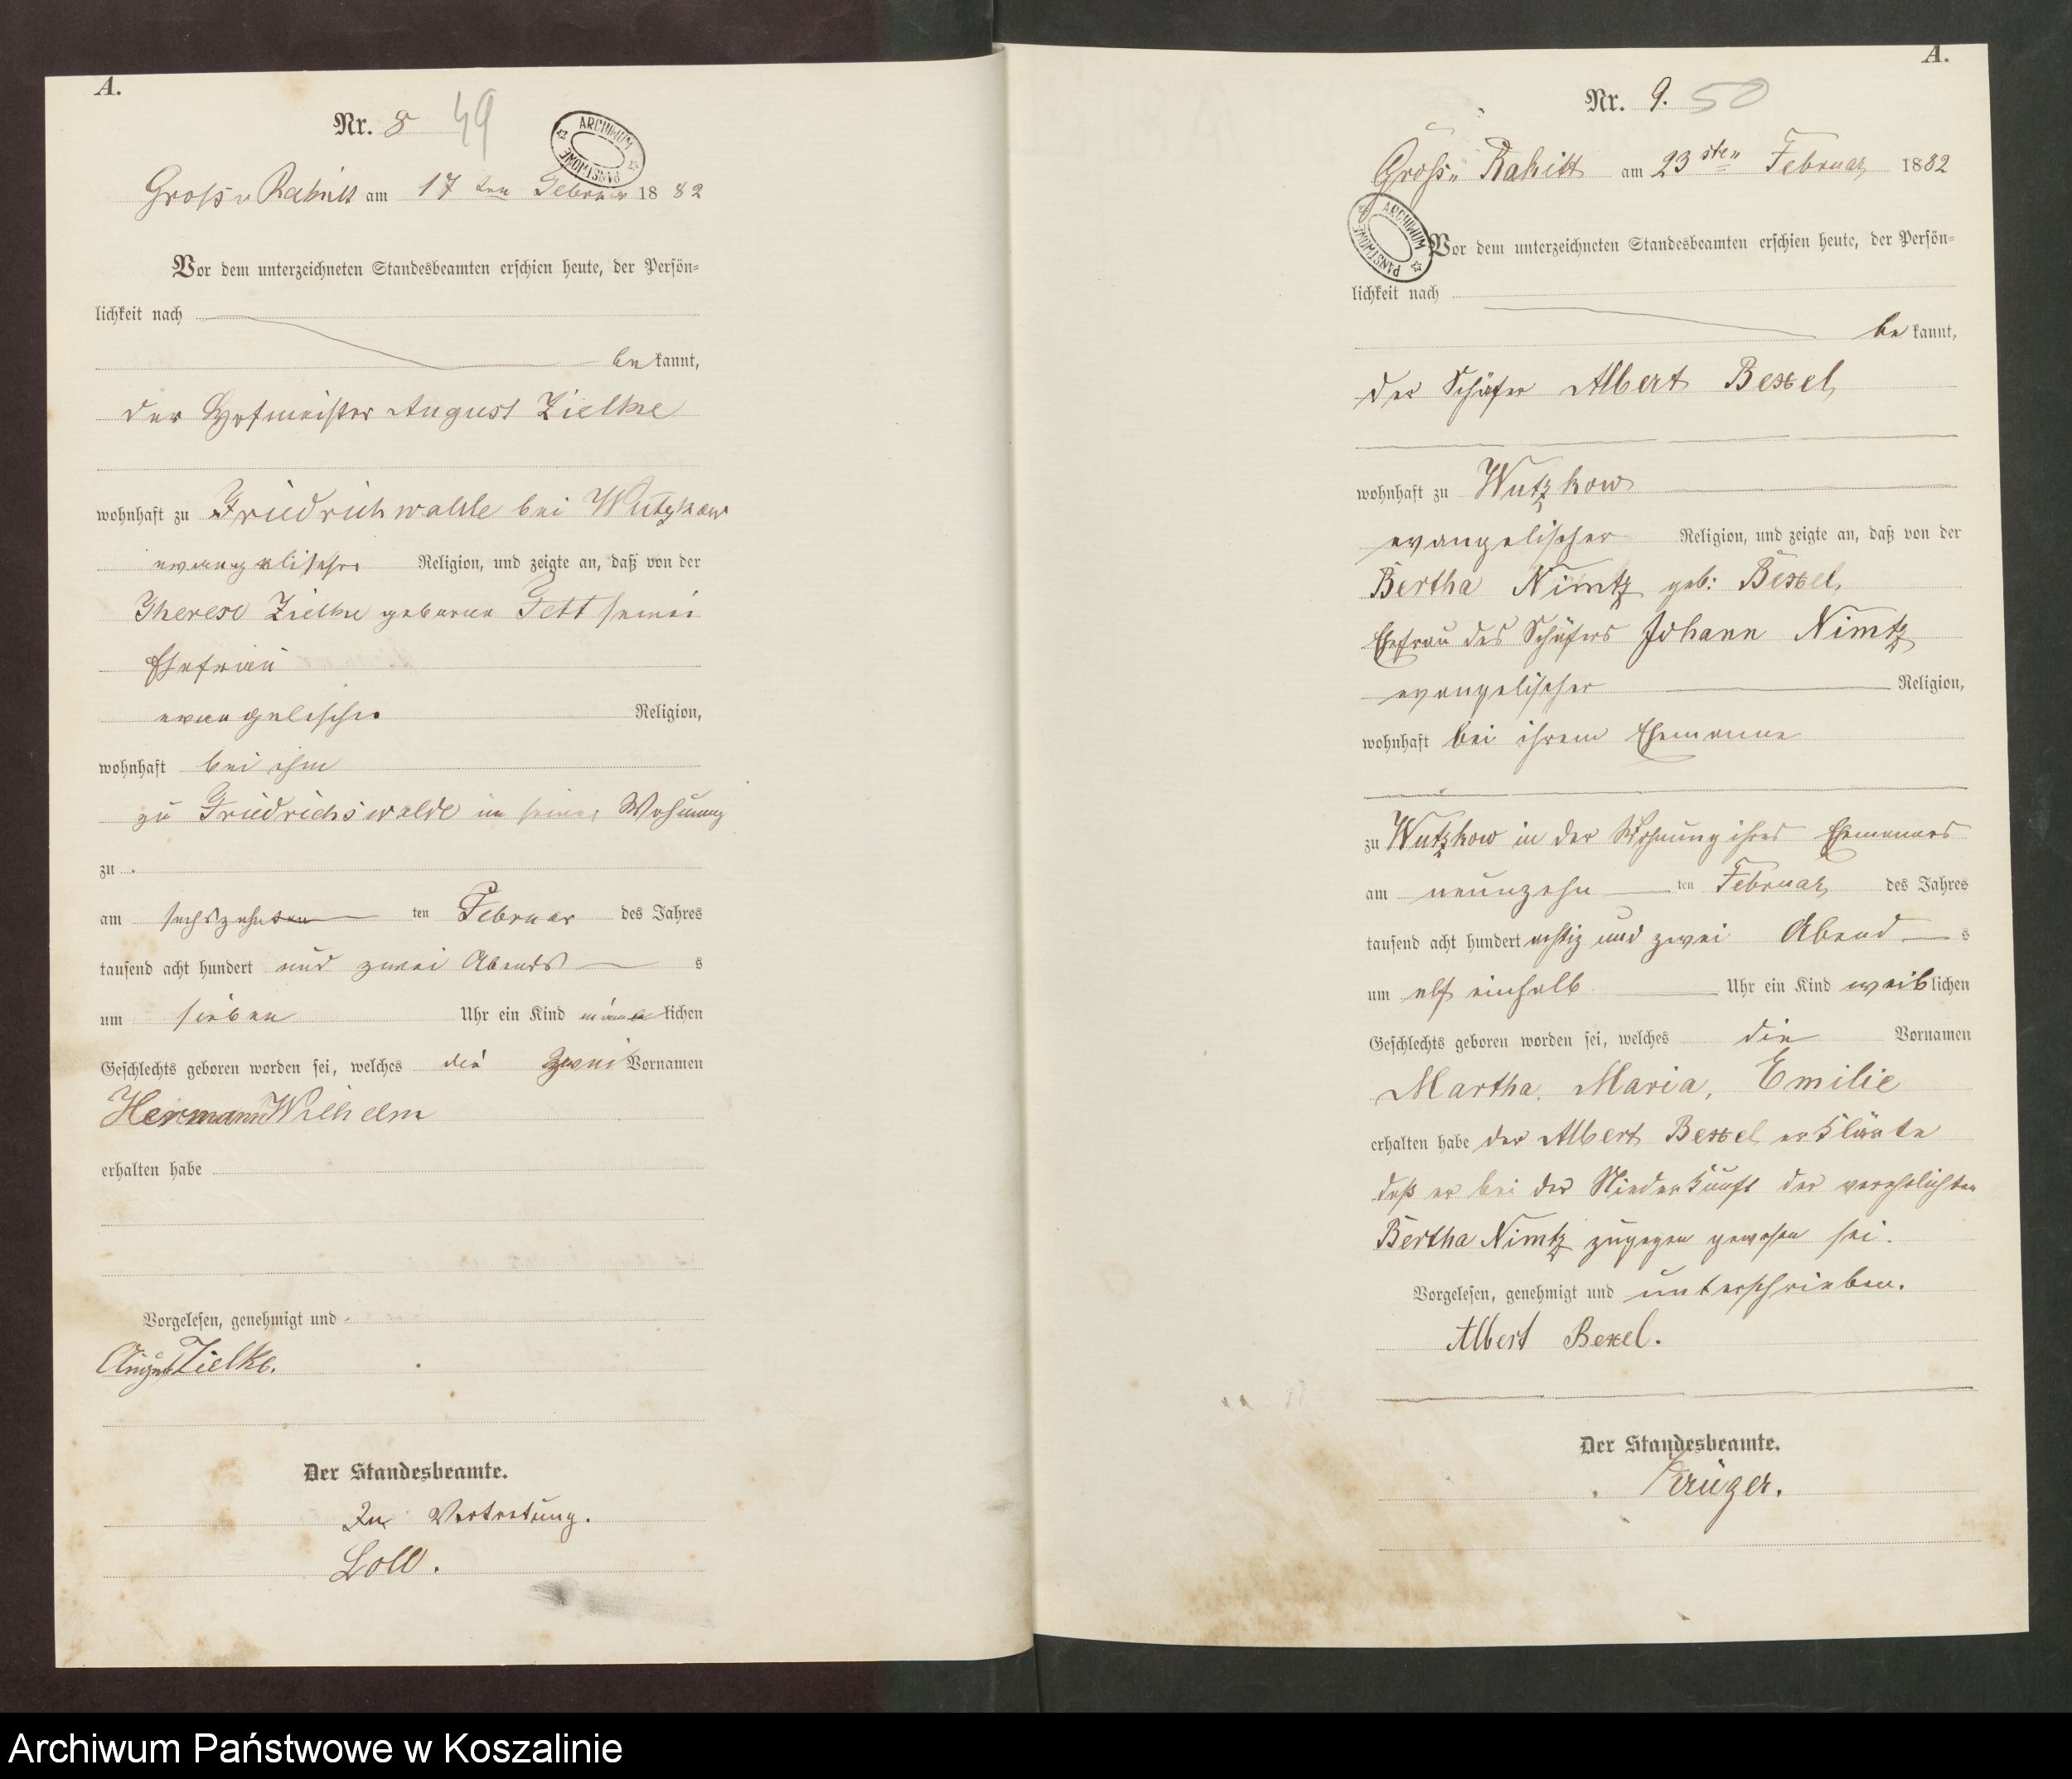 A.
Nr. 8 49
ARCHIWUM PAŃSTWOWE
Gross Rakitt am 17 ten Februar 1882
Vor dem unterzeichneten Standesbeamten erschien heute, der Persön-
lichkeit nach
be kannt,
der Hofmeister August Zielke
wohnhaft zu Friedrichwalde bei Wutzkow
evangelischer Religion, und zeigte an, daß von der
Therese Zielke geborne Tett seiner
Ehefrau
evangelischer Religion,
wohnhaft bei ihm
zu Friedrichswalde in seiner Wohnung
zu
am sechszehnten ten Februar des Jahres
tausend acht hundert und zwei Abends s
um sieben Uhr ein Kind männ lichen
Geschlechts geboren worden sei, welches die zwei Vornamen
Hermann Wilhelm
erhalten habe
Vorgelesen, genehmigt und
August Zielke.
Der Standesbeamte.
In Vertretung.
Loll.
A.
Nr. 9. 50
Groß Rakitt am 23sten Februar 1882
ARCHIWUM PAŃSTWOWE
Vor dem unterzeichneten Standesbeamten erschien heute, der Persön-
lichkeit nach
be kannt,
der Schäfer Albert Bexel,
wohnhaft zu Wutzkow
evangelischer Religion, und zeigte an, daß von der
Bertha Nimtz geb: Bexel,
Ehefrau des Schäfers Johann Nimtz
evangelischer Religion,
wohnhaft bei ihrem Ehemanne
zu Wutzkow in der Wohnung ihres Ehemannes
am neunzehn ten Februar des Jahres
tausend acht hundert achtzig und zwei Abend s
um elf einhalb Uhr ein Kind weib lichen
Geschlechts geboren worden sei, welches die Vornamen
Martha, Maria, Emilie
erhalten habe der Albert Bexel erklärte
daß er bei der Niederkunft der verehelichten
Bertha Nimtz zugegen gewesen sei.
Vorgelesen, genehmigt und unterschrieben.
Albert Bexel.
Der Standesbeamte.
Krüger.
Archiwum Państwowe w Koszalinie